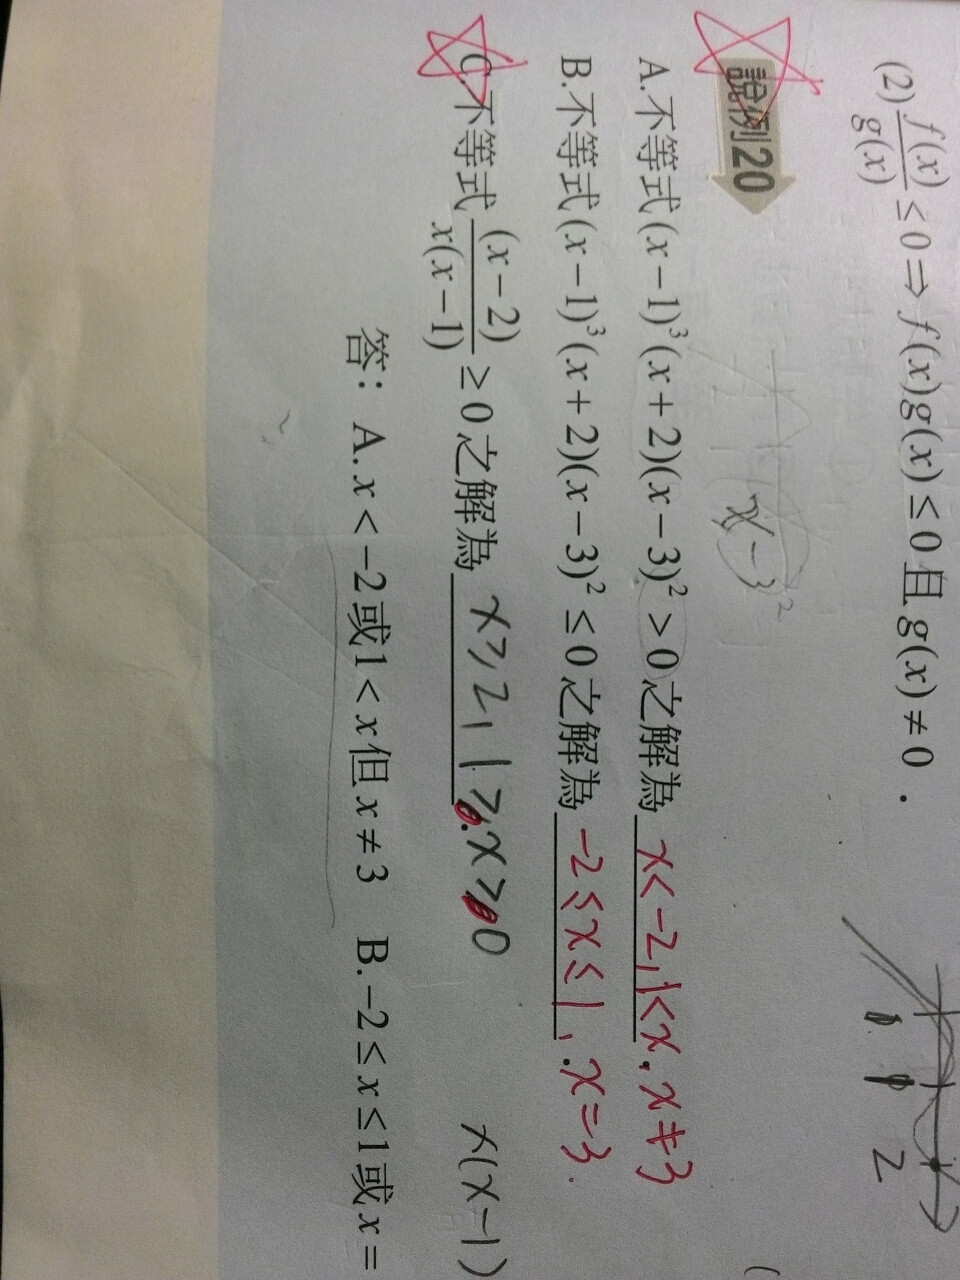 (2) f(x)/g(x) ≤ 0 ⇒ f(x)g(x) ≤ 0 且 g(x) ≠ 0 .
1 2
說例20
x-3²
A.不等式(x−1)³(x+2)(x−3)² > 0之解為 x<-2, 1<x, x≠3
B.不等式(x−1)³(x+2)(x−3)² ≤ 0之解為 -2≤x≤1, x=3.
C.不等式 (x−2)/x(x−1) ≥ 0之解為 x≥2, 1≥x≥0
x(x-1)
答： A. x < −2或1 < x但x ≠ 3 B. −2 ≤ x ≤ 1或x =